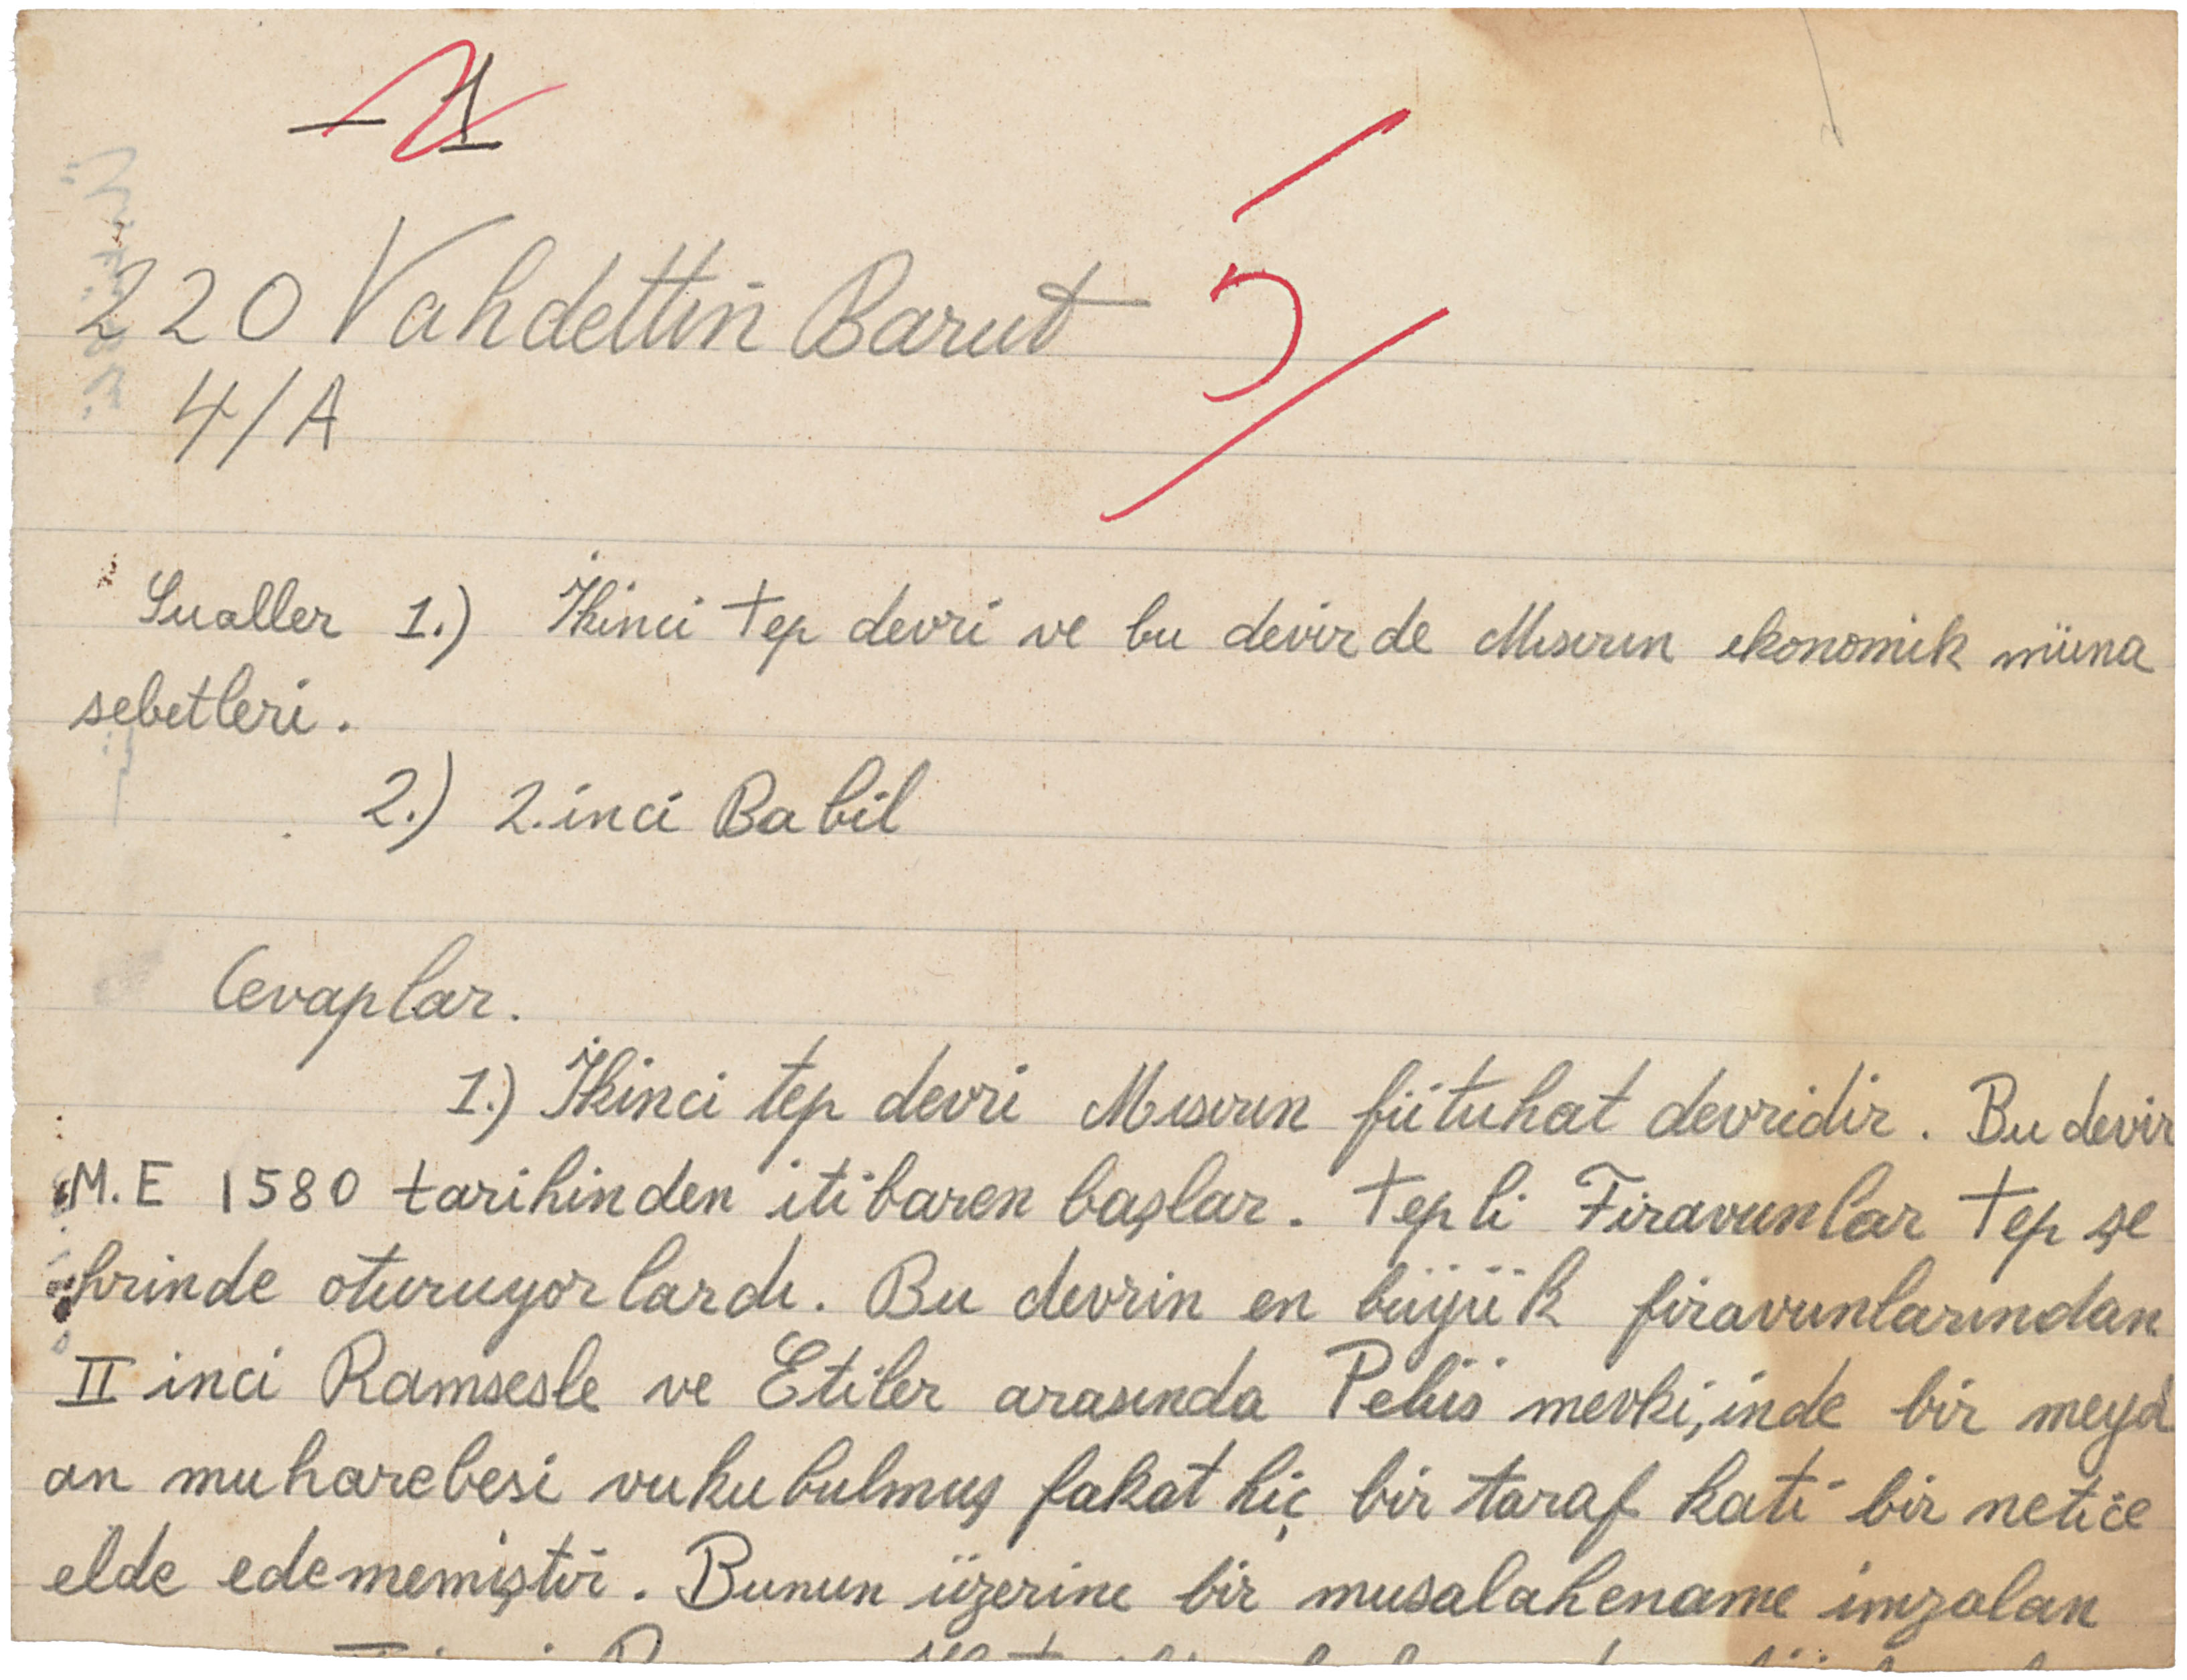 1
220 Vahdettin Barut
5
4/A
Sualler 1.) İkinci Tep devri ve bu devirde Mısırın ekonomik müna
sebetleri.
2.) 2.inci Babil
Cevaplar.
1.) İkinci tep devri Mısırın fütuhat devridir. Bu devir
M.E 1580 tarihinden itibaren başlar. Tepli Firavunlar Tep şe
hrinde oturuyorlardı. Bu devrin en büyük firavunlarından
II inci Ramsesle ve Etiler arasında mevki,inde bir meyd
an muharebesi vukubulmuş fakat hiç bir taraf kati bir netice
elde edememiştir. Bunun üzerine bir musalahename imzalan